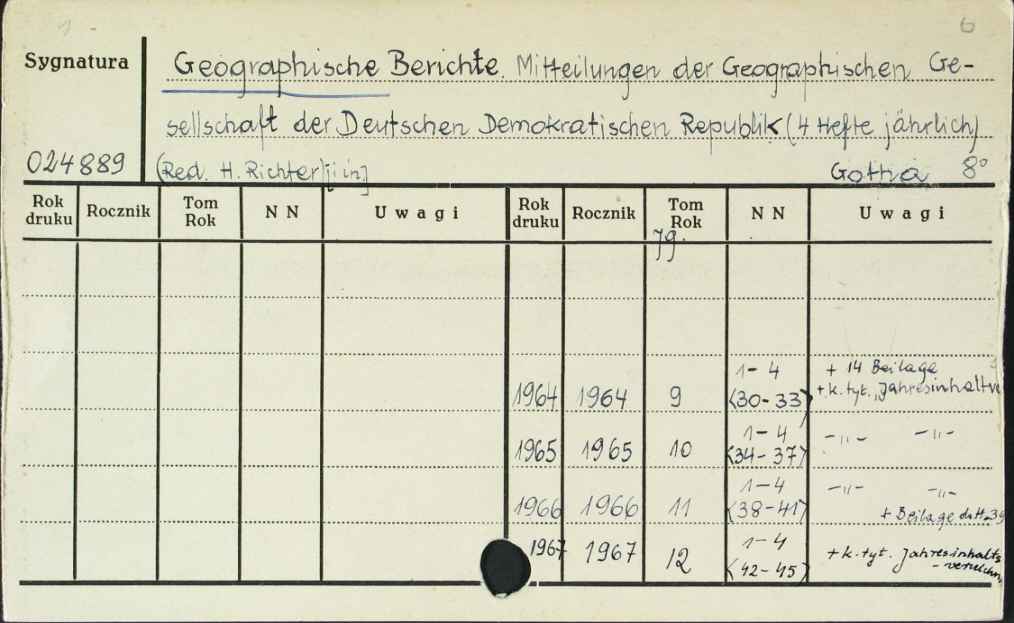 6
Sygnatura Geographische Berichte. Mitteilungen der Geographischen Ge-
sellschaft der Deutschen Demokratischen Republik (4 Hefte jährlich)
024889 (Red. H. Richter [i in.] Gotha 8°
Rok druku Rocznik Tom Rok NN Uwagi Rok druku Rocznik Tom Rok NN Uwagi
Jg.
1-4 + 14 Beilage
1964 1964 9 <30-33> + k. tyt., Jahresinhaltve
1-4 -„- -„-
1965 1965 10 <34-37>
1-4 -„- -„-
1966 1966 11 <38-41> + Beilage do H. 39
1967 1967 12 1-4 + k. tyt. Jahresinhalts
<42-45> -verzeichn.